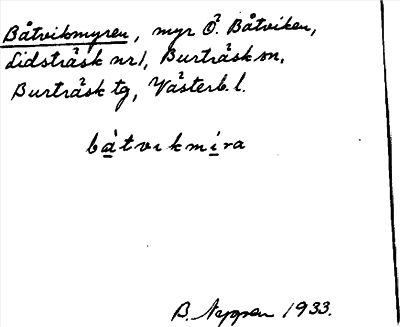 Båtvikmyren, myr Ö. Båtviken,
Lidsträsk nr 1, Burträsk sn,
Burträsk tg, Västerb. l.
båtvikmira
B. 1933.